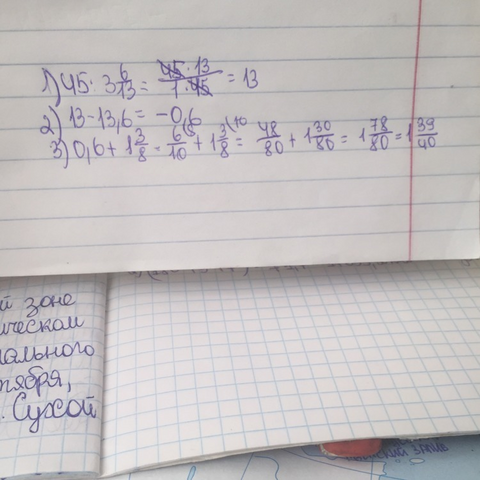 1) 45 · 3 6/13 = 45 · 13 / 1 · 45 = 13
2) 13 - 13,6 = -0,6
3) 0,6 + 1 3/8 = 6/10 (8 + 1 3/8 (10 = 48/80 + 1 30/80 = 1 78/80 = 1 39/40
й зоне
ическом
ального
тября,
. Сухой